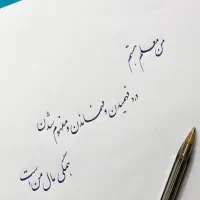 من معلم هستم
درد فهمیدن و فهماندن و مفهوم شدن
همگی مال من است